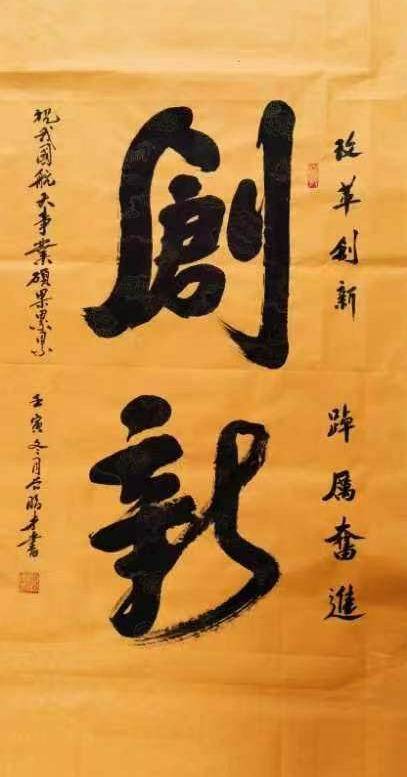 改革創新
踔厲奮進
創新
祝我國航天事業碩果累累
壬寅冬月谷聰才書